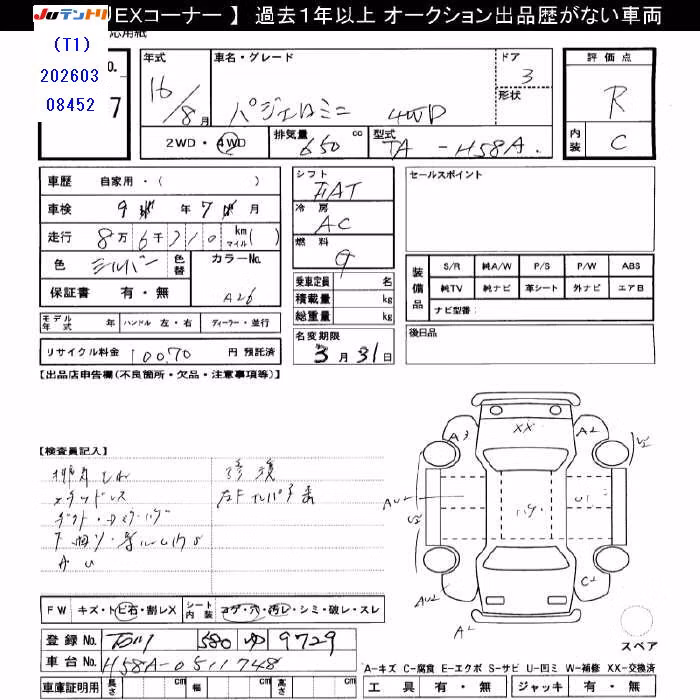 JUテントリ EXコーナー 】 過去１年以上 オークション出品歴がない車両
(T1)
202603
08452
年式
16/8月
車名・グレード
パジェロミニ 4WD
ドア
3
形状
評価点
R
内装
C
2WD・4WD
排気量
650 cc
型式
TA-H58A.
車歴 自家用・( )
車検 9 年 7 月
走行 8万6千310 km マイル( )
色 シルバー 色替
カラーNo.
A26
保証書 有・無
シフト
FAT
冷房
AC
燃料
G
乗車定員 名
積載量 kg
総重量 kg
セールスポイント
装備品
S/R 純A/W P/S P/W ABS
純TV 純ナビ 革シート 外ナビ エアB
ナビ型番：
モデル年式 年 ハンドル 左・右 ディーラー・並行
名変期限
3月31日
後日品
リサイクル料金 10070 円 預託済
【出品店申告欄(不良箇所・欠品・注意事項等)】
【検査員記入】
修復
A3
XX
A2
A2
C2
FW キズ・トビ石・割レX
シート内装 コゲ・穴・汚レ・シミ・破レ・スレ
登録No. 石川 580 ゆ 9729
車台No. H58A-0511748
車庫証明用 長さ cm 幅 cm 高さ cm
スペア
A-キズ C-腐食 E-エクボ S-サビ U-凹ミ W-補修 XX-交換済
工具 有・無 ジャッキ 有・無